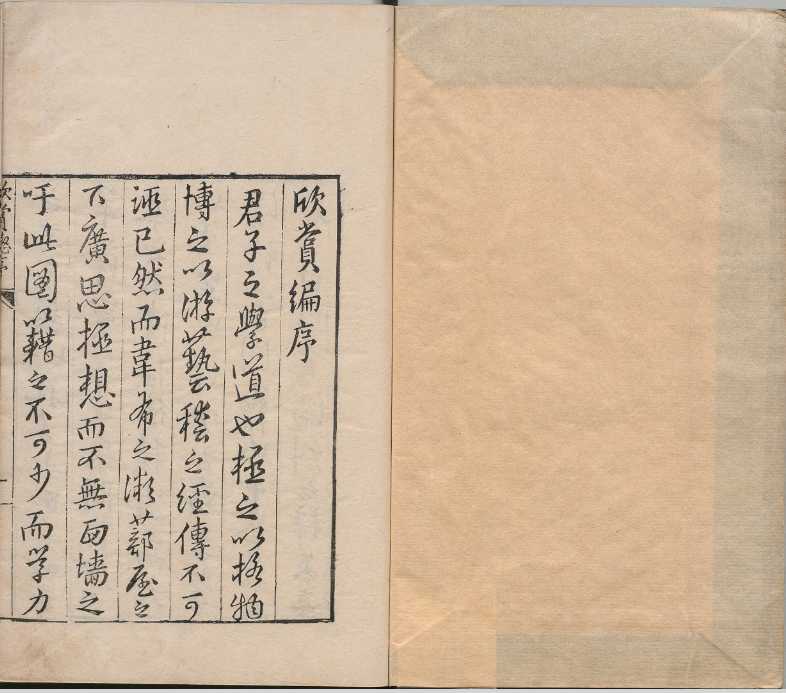 欣賞編序
君子之學道也極之以格物
博之以游藝稽之經傳不可
誣已然而韋布之微蔀屋之
下廣思極想而不無面墻之
吁此圖以籍之不可少而學力
欣賞總序